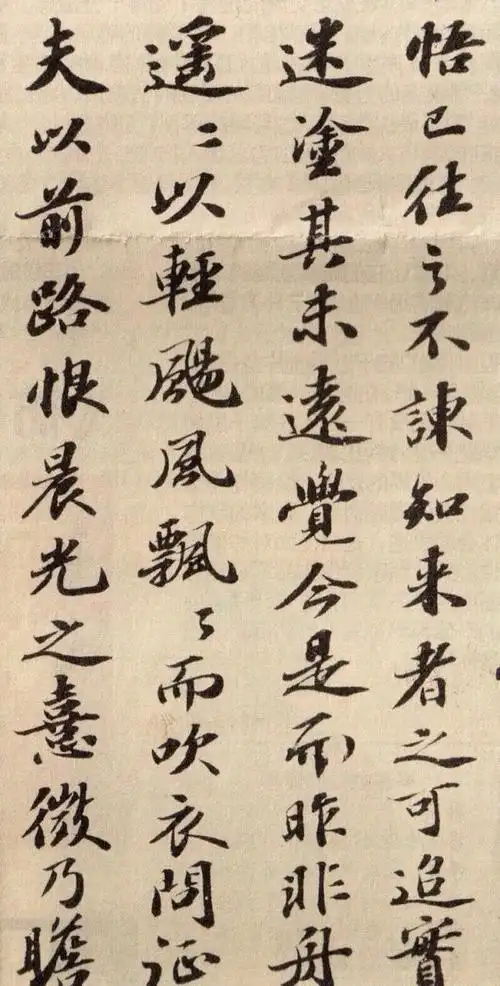 悟已往之不諫知来者之可追實
迷塗其未遠覺今是而昨非舟
遥〻以輕颺風飄〻而吹衣問征
夫以前路恨晨光之熹微乃瞻